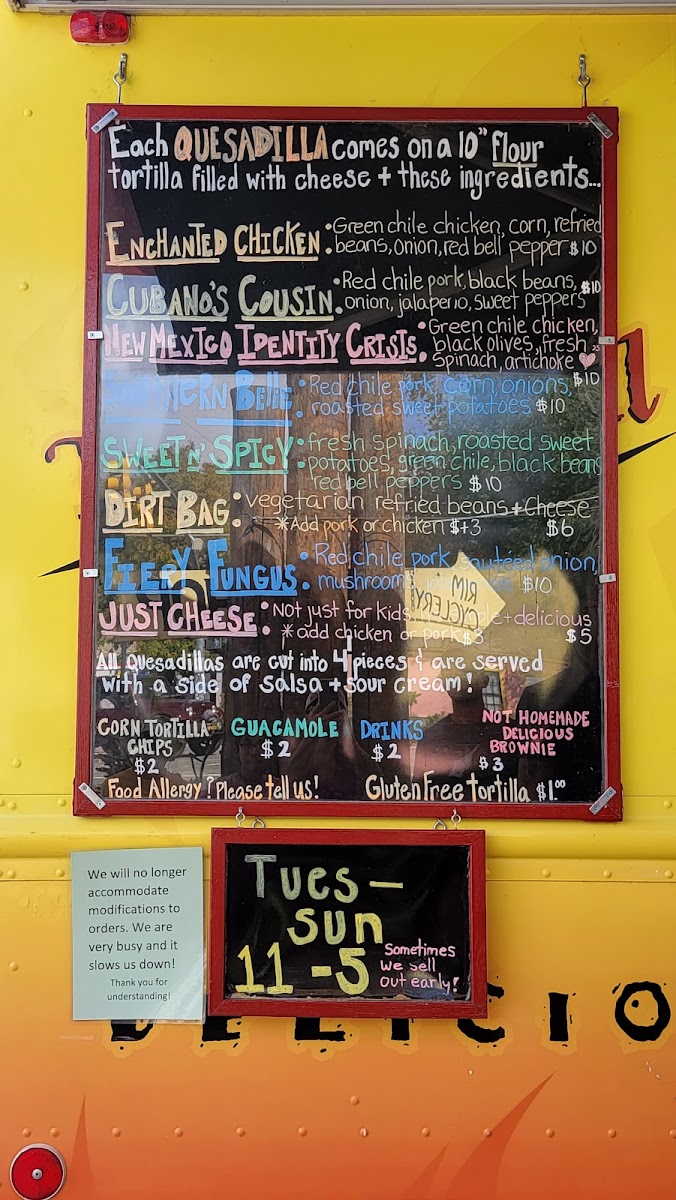 Each QUESADILLA comes on a 10" flour
tortilla filled with cheese + these ingredients...
ENCHANTED CHICKEN: Green chile chicken, corn, refried
beans, onion, red bell pepper $10
CUBANO'S COUSIN: Red chile pork, black beans, $10
onion, jalapeño, sweet peppers
NEW MEXICO IDENTITY CRISIS: Green chile chicken,
black olives, fresh
spinach, artichoke ♥
$10
SOUTHERN BELLE: Red chile pork, corn, onions,
roasted sweet potatoes $10
SWEET N' SPICY: fresh spinach, roasted sweet
potatoes, green chile, black beans
red bell peppers $10
DIRT BAG: vegetarian refried beans + cheese
*Add pork or chicken $+3 $6
FIERY FUNGUS: Red chile pork, sautéed onion,
mushroom $10
JUST CHEESE: Not just for kids + delicious
*add chicken or pork $3 $5
All Quesadillas are cut into 4 pieces & are served
with a side of salsa + sour cream!
CORN TORTILLA
CHIPS
$2
GUACAMOLE
$2
DRINKS
$2
NOT HOMEMADE
DELICIOUS
BROWNIE
$3
Food Allergy? Please tell us!
Gluten Free tortilla $1.00
RIM
CYCLERY
We will no longer
accommodate
modifications to
orders. We are
very busy and it
slows us down!
Thank you for
understanding!
Tues -
Sun
11 - 5
Sometimes
we sell
out early!
DELICIO